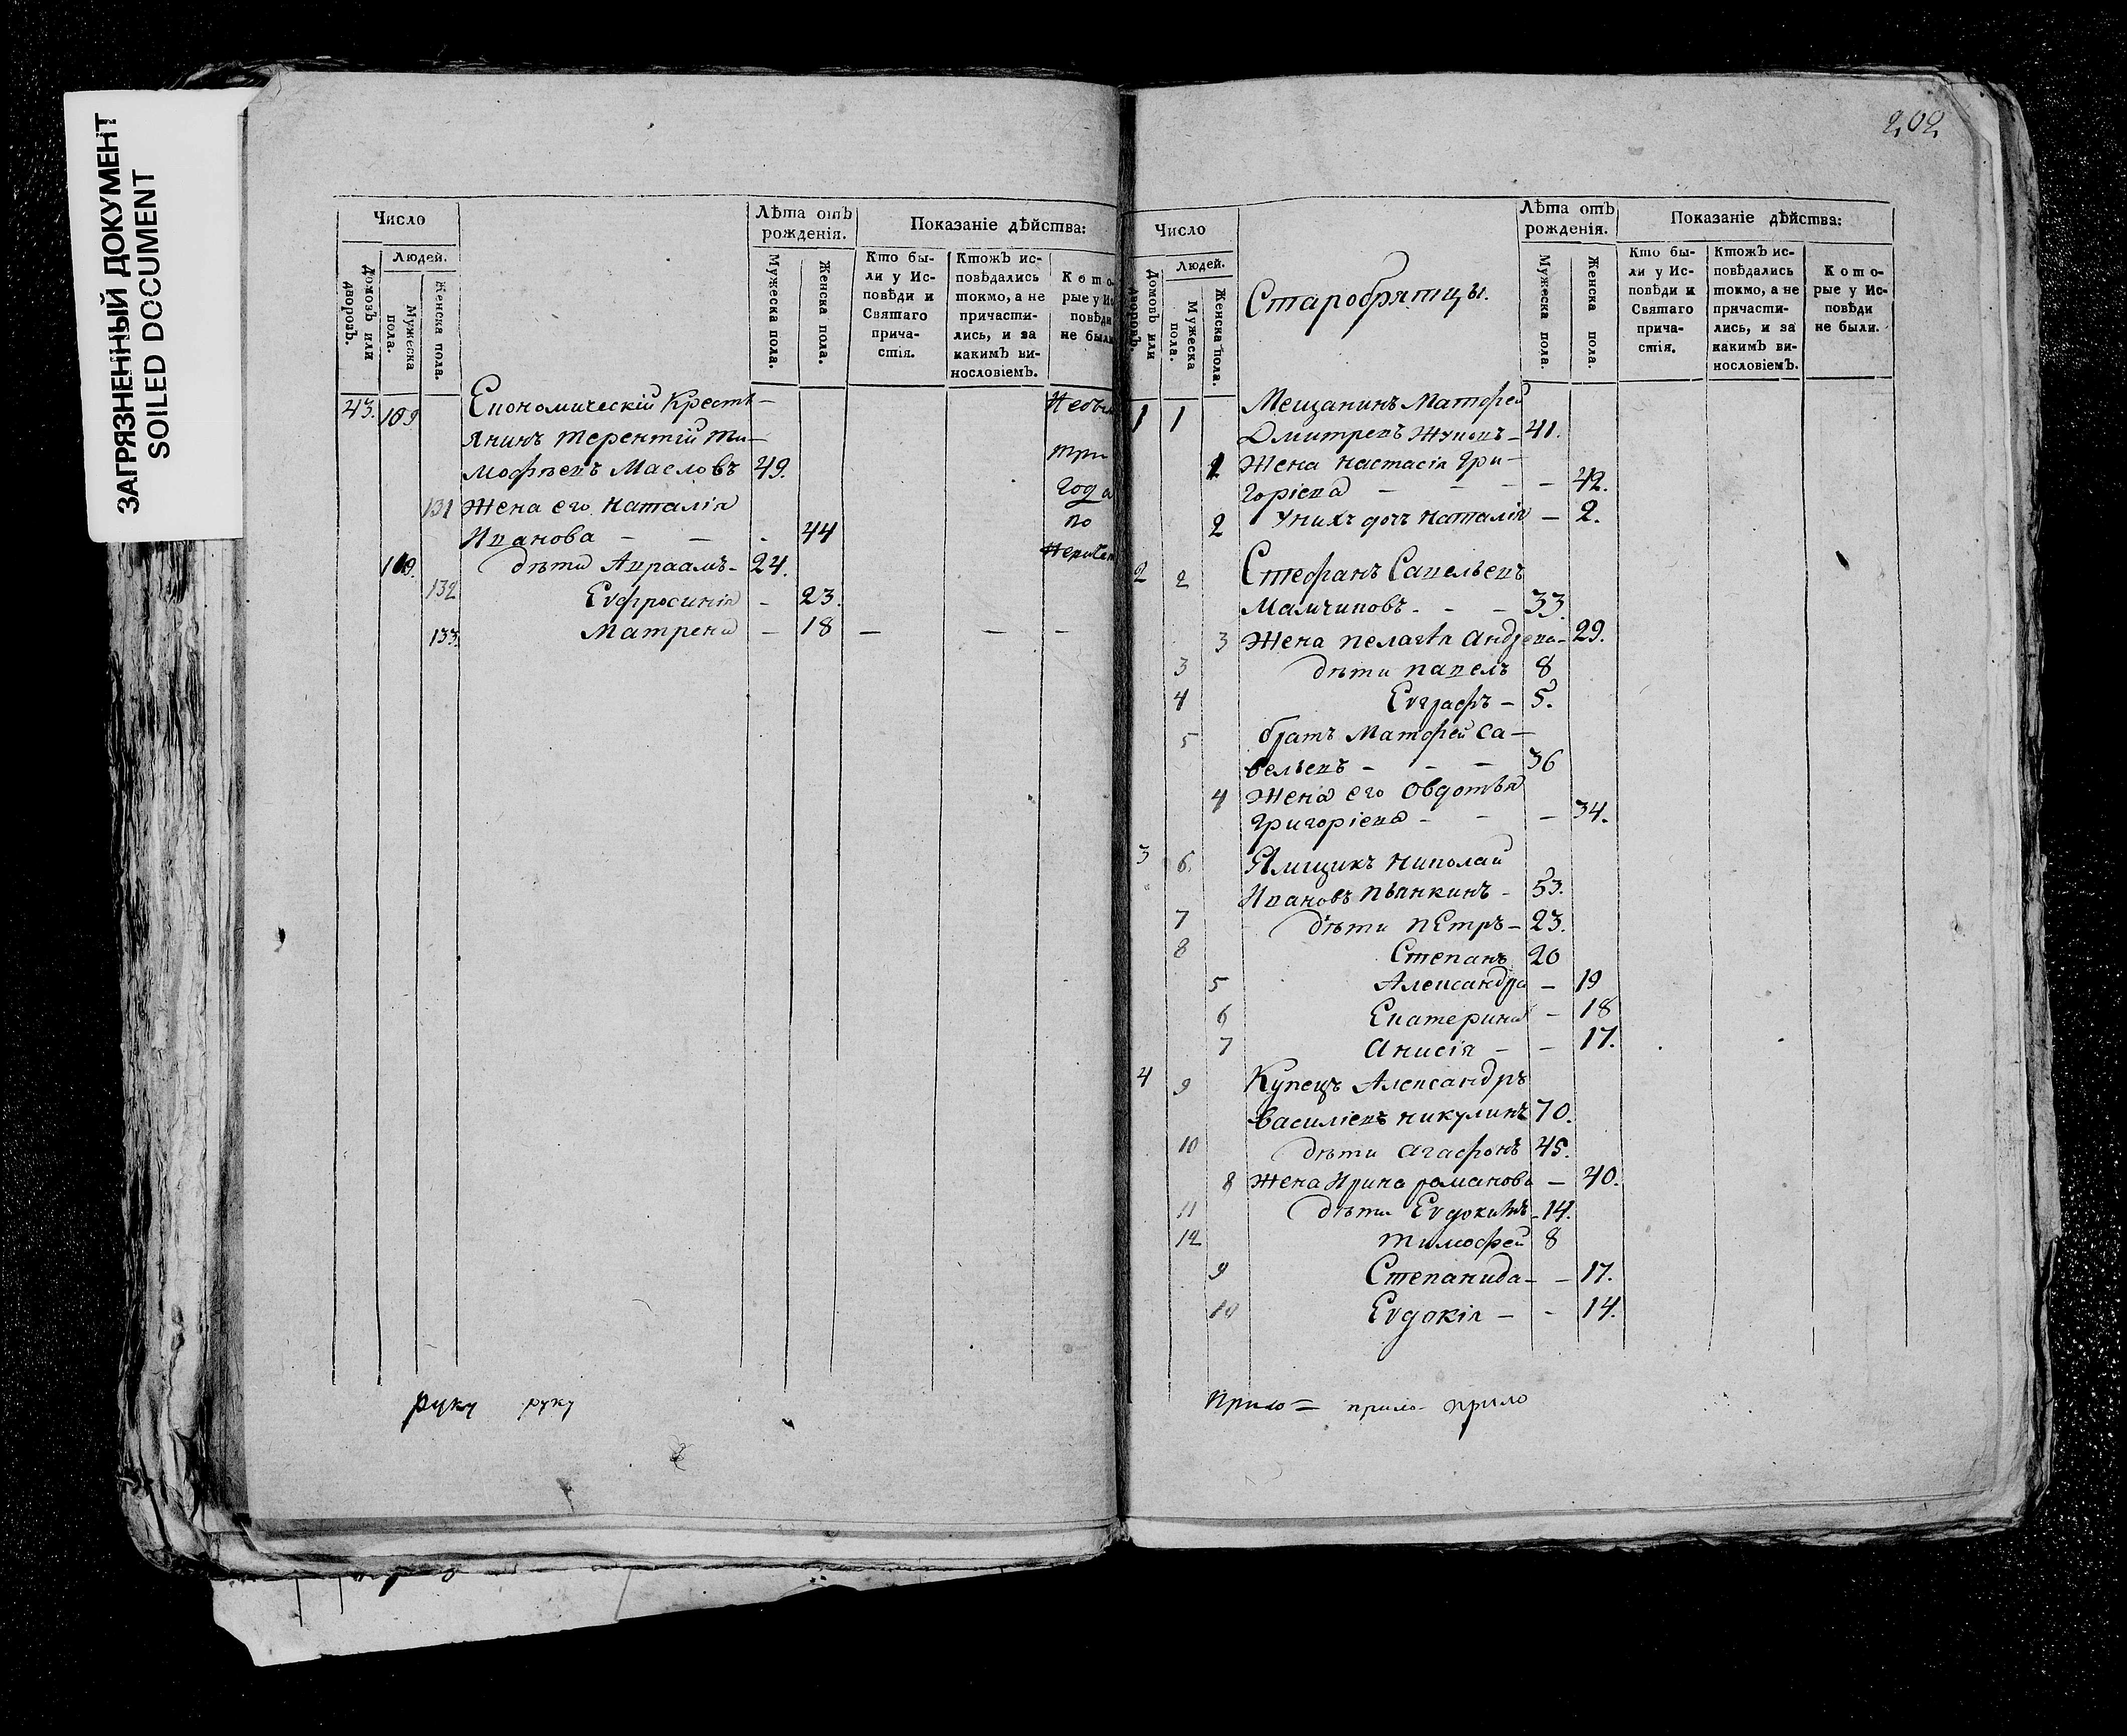 ЗАГРЯЗНЕННЫЙ ДОКУМЕНТ
SOILED DOCUMENT
Число
Людей.
Домовъ или дворовъ.
Мужеска пола.
Женска пола.
Лѣта отъ рожденія.
Мужеска пола.
Женска пола.
Показаніе дѣйства:
Кто бы-
ли у Ис-
повѣди и
Святаго
прича-
стія.
Ктожъ ис-
повѣдались
токмо, а не
причасти-
лись, и за
какимъ ви-
нословіемъ.
Кото-
рые у Ис
повѣди
не были
43. 109 Економическій Кресть-
янинъ Терентій Ти-
мофѣевъ Масловъ 49.
131 Жена его Наталія
Иванова - - - 44
дѣти Авраамъ - 24.
132 Евфросинія - 23.
133. Матрена - 18 - - -
три
года
по
руку руку
202
Число
Людей.
Домовъ или дворовъ.
Мужеска пола.
Женска пола.
Старобрятцы.
Лѣта отъ рожденія.
Мужеска пола.
Женска пола.
Показаніе дѣйства:
Кто бы-
ли у Ис-
повѣди и
Святаго
прича-
стія.
Ктожъ ис-
повѣдались
токмо, а не
причасти-
лись, и за
какимъ ви-
нословіемъ.
Кото-
рые у Ис-
повѣди
не были.
1 1 Мещанинъ Матфей
Дмитревъ - 41.
1 Жена Настасія Гри-
горіева - - - - 42.
2 У нихъ дочь Наталія - 2.
2 2 Стефанъ Савельевъ
- - - 33.
3 Жена Пелагѣя Андрева - 29.
3 дѣти Павелъ 8
4 Евграфъ - 5.
5 братъ Матфей Са-
вельевъ - - - 36
4 Жена его Овдотья
Григоріева - - - 34.
3 6. Ямщикъ Николай
Ивановъ - 53.
7 дѣти Петръ - 23.
8 Степанъ 20
5 Александра - 19
6 Екатерина - 18
7 Анисія - - 17.
4 9 Купецъ Александръ
Василіевъ Никулинъ 70.
10 дѣти Агафонъ 45.
8 Жена Ирина Романова - 40.
11 дѣти Евдокимъ - 14.
12 Тимофей 8
9 Степанида - - 17.
10 Евдокія - - 14.
Прило= прило- прило